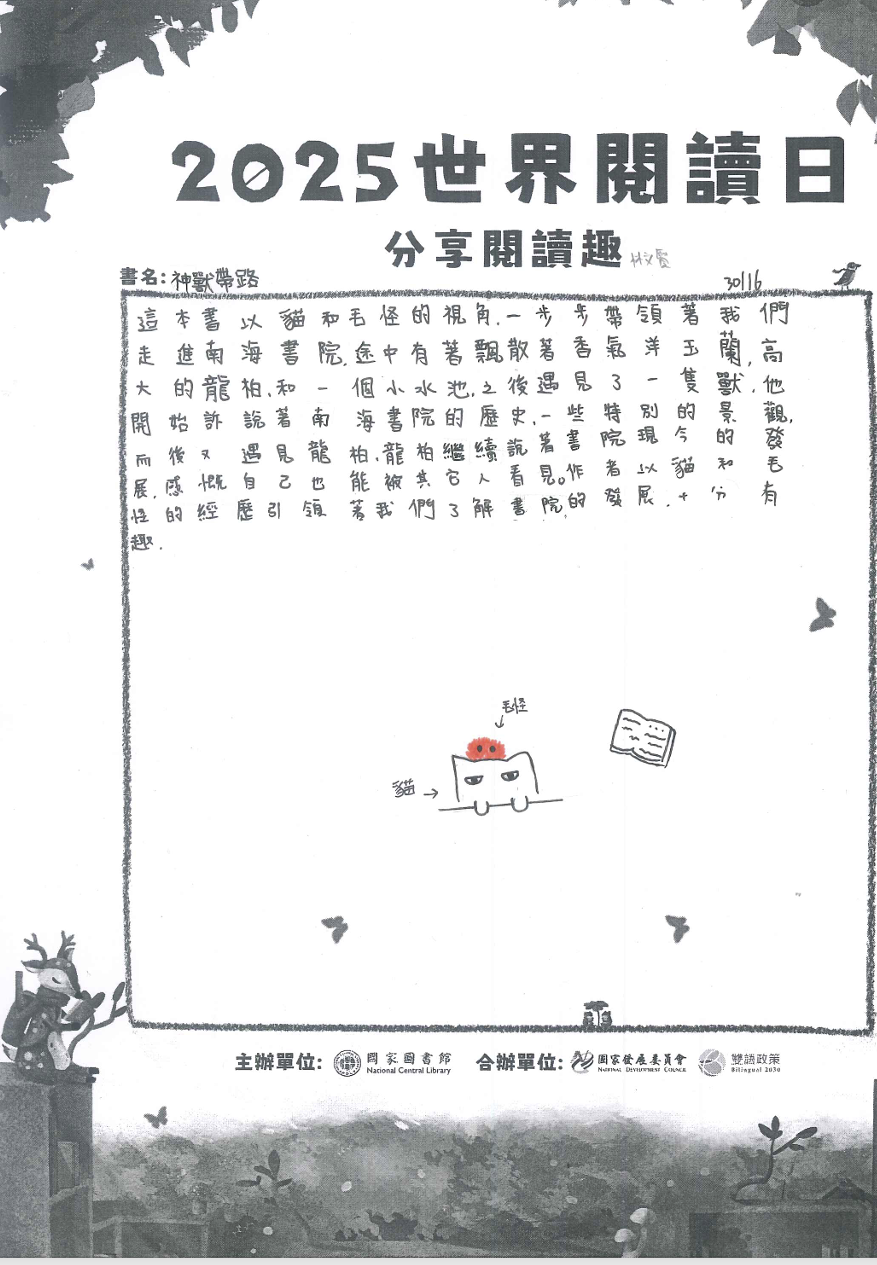 2025世界閱讀日
分享閱讀趣
書名:神獸帶路
30116
這本書以貓和毛怪的視角,一步步帶領著我們
走進南海書院,途中有著飄散著香氣洋玉蘭,高
大的龍柏,和一個小水池,之後遇見了一隻獸,他
開始訴說著南海書院的歷史,一些特別的景觀,
而後又遇見龍柏,龍柏繼續說著書院現今的發
展,感慨自己也能被其它人看見。作者以貓和毛
怪的經歷引領著我們了解書院的發展,十分有
趣.
毛怪
貓
主辦單位: 國家圖書館 National Central Library 合辦單位: 國家發展委員會 National Development Council 雙語政策 Bilingual 2030